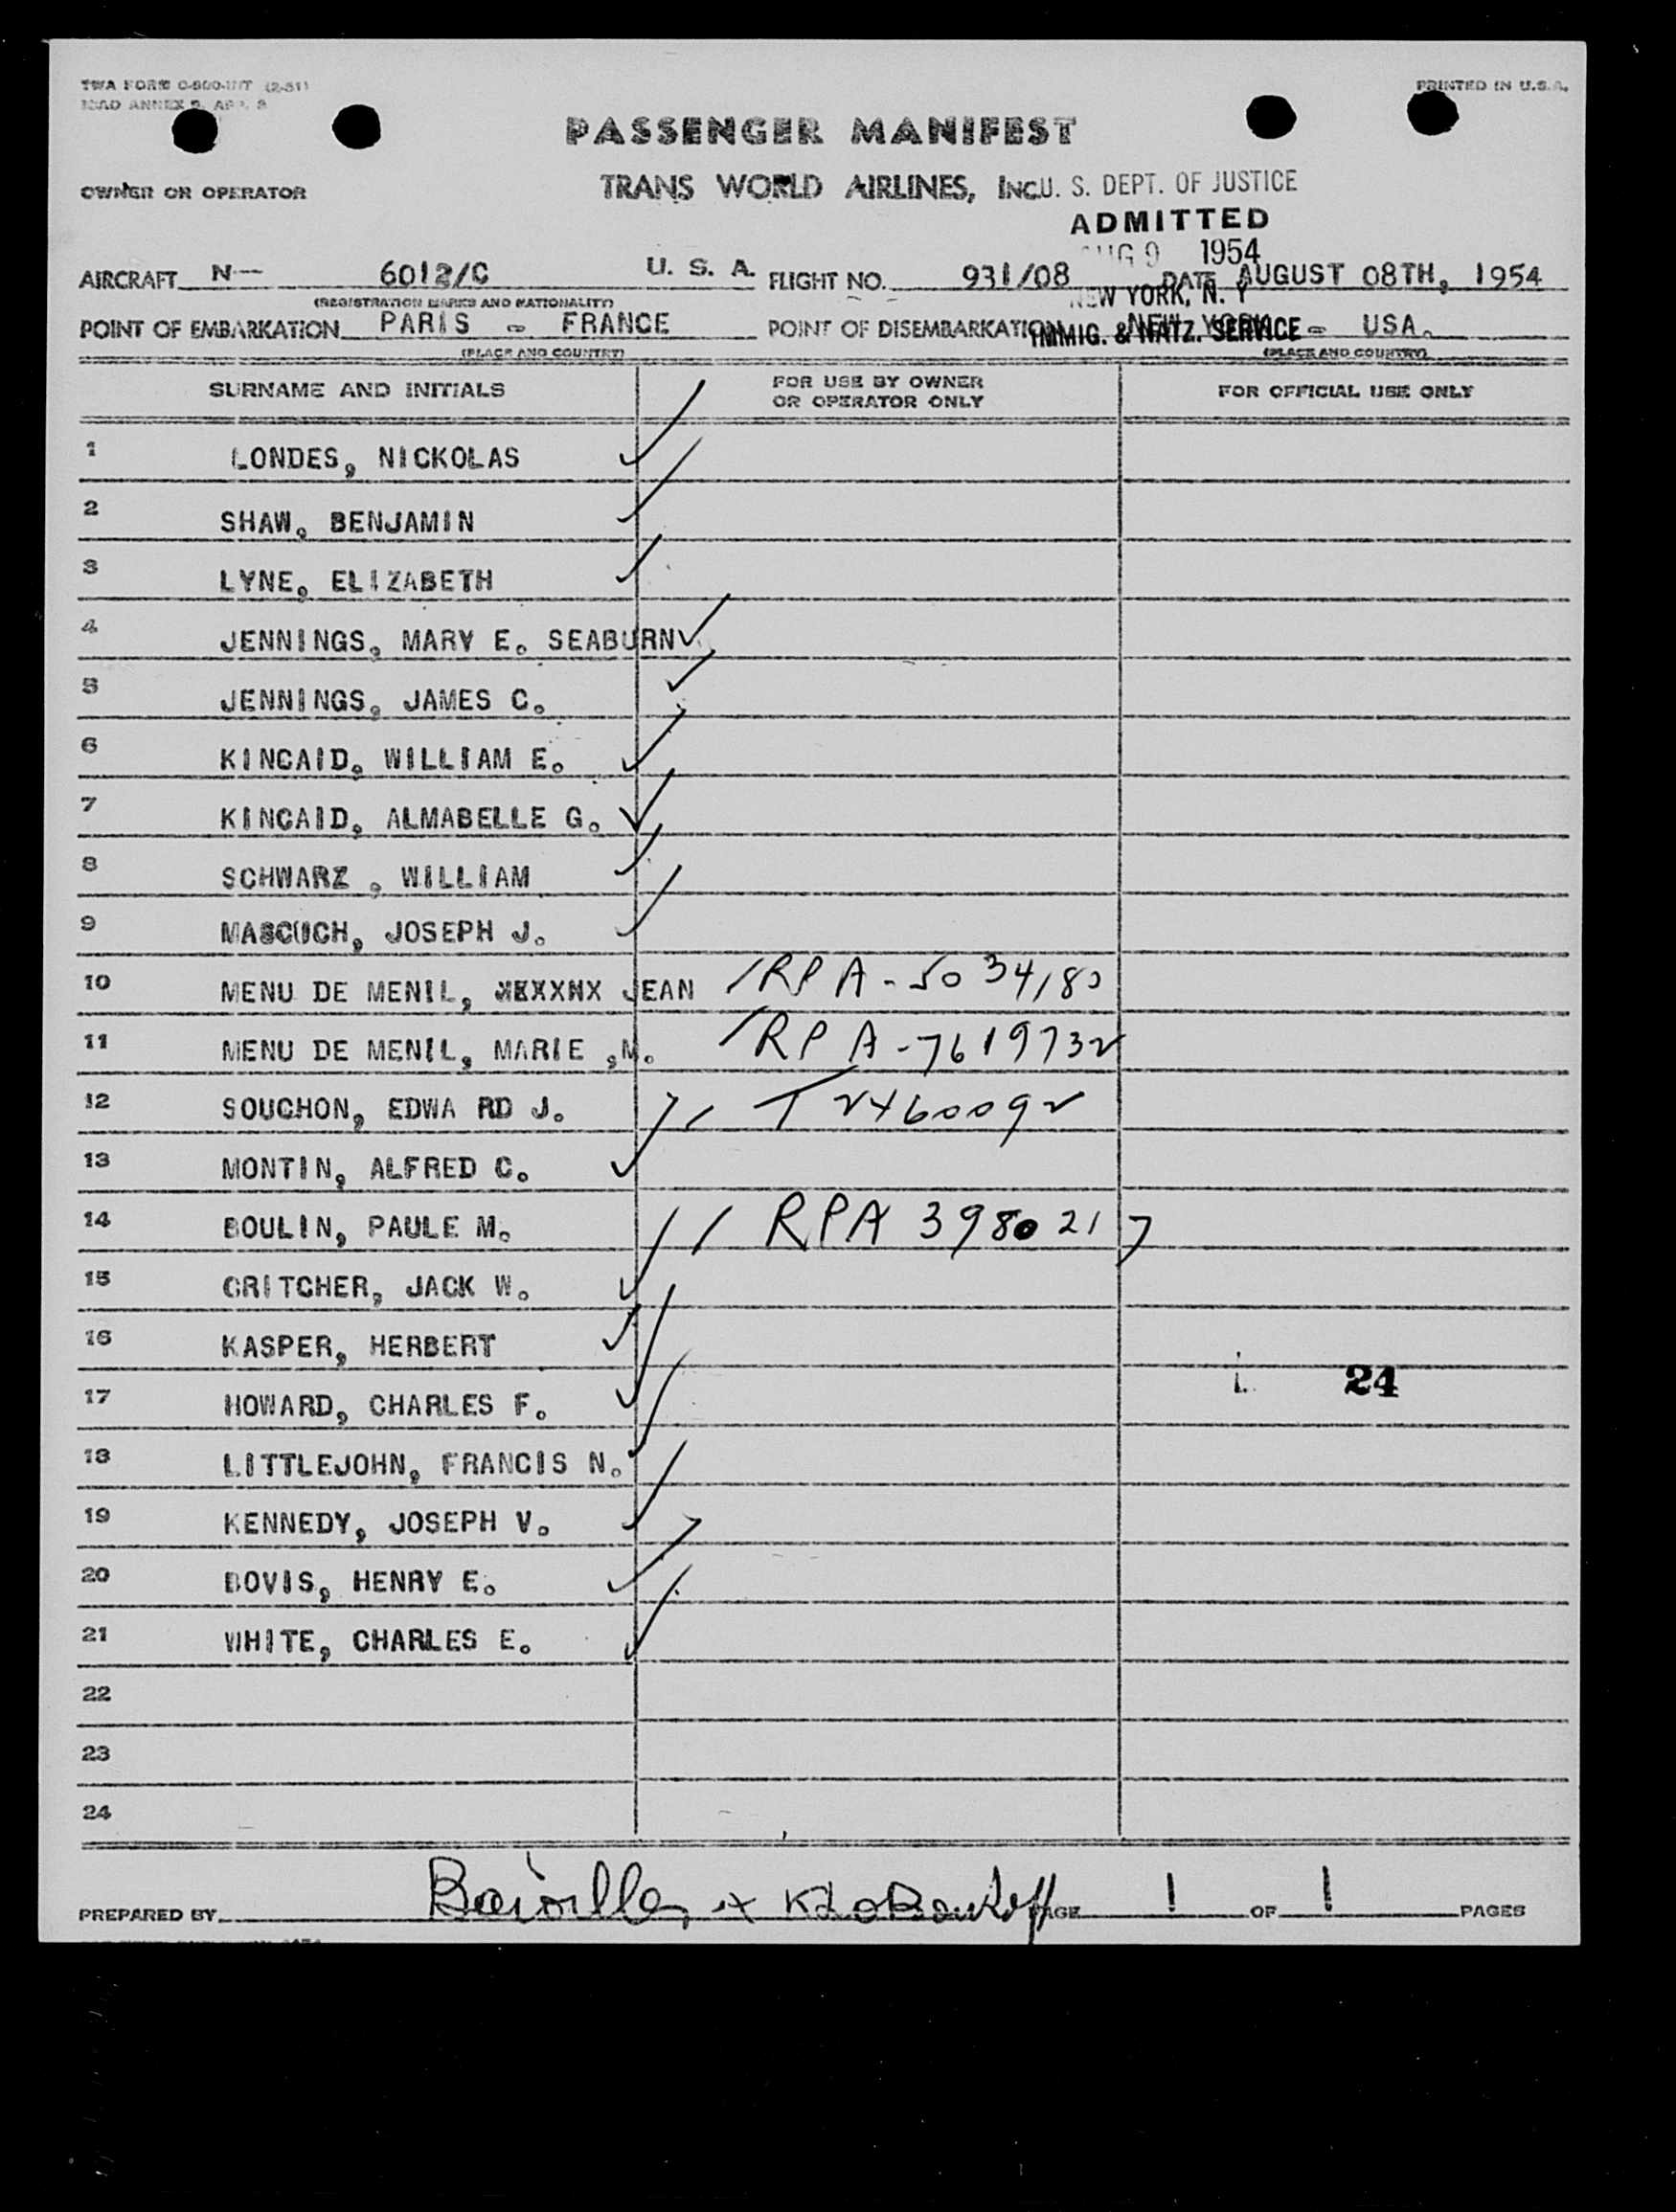 TWA FORM C-800-INT (2-51)
ICAO ANNEX 9, APP. 3
PRINTED IN U.S.A.
PASSENGER MANIFEST
OWNER OR OPERATOR TRANS WORLD AIRLINES, INC.
U. S. DEPT. OF JUSTICE
ADMITTED
AUG 9 1954
NEW YORK, N. Y
IMMIG. & NATZ. SERVICE
AIRCRAFT N-- 6012/C U. S. A. FLIGHT NO. 931/08 DATE AUGUST 08TH, 1954
(REGISTRATION MARKS AND NATIONALITY)
POINT OF EMBARKATION PARIS - FRANCE POINT OF DISEMBARKATION NEW YORK - USA.
(PLACE AND COUNTRY) (PLACE AND COUNTRY)
SURNAME AND INITIALS FOR USE BY OWNER OR OPERATOR ONLY FOR OFFICIAL USE ONLY
1 LONDES, NICKOLAS
2 SHAW, BENJAMIN
3 LYNE, ELIZABETH
4 JENNINGS, MARY E. SEABURN
5 JENNINGS, JAMES C.
6 KINCAID, WILLIAM E.
7 KINCAID, ALMABELLE G.
8 SCHWARZ , WILLIAM
9 MASCUCH, JOSEPH J.
10 MENU DE MENIL, JEAN RP A-5034183
11 MENU DE MENIL, MARIE ,M. RP A-7619732
12 SOUCHON, EDWA RD J. T 2460092
13 MONTIN, ALFRED C.
14 BOULIN, PAULE M. RPA 3980217
15 CRITCHER, JACK W.
16 KASPER, HERBERT
24
17 HOWARD, CHARLES F.
18 LITTLEJOHN, FRANCIS N.
19 KENNEDY, JOSEPH V.
20 BOVIS, HENRY E.
21 WHITE, CHARLES E.
22
23
24
PREPARED BY PAGE 1 OF 1 PAGES